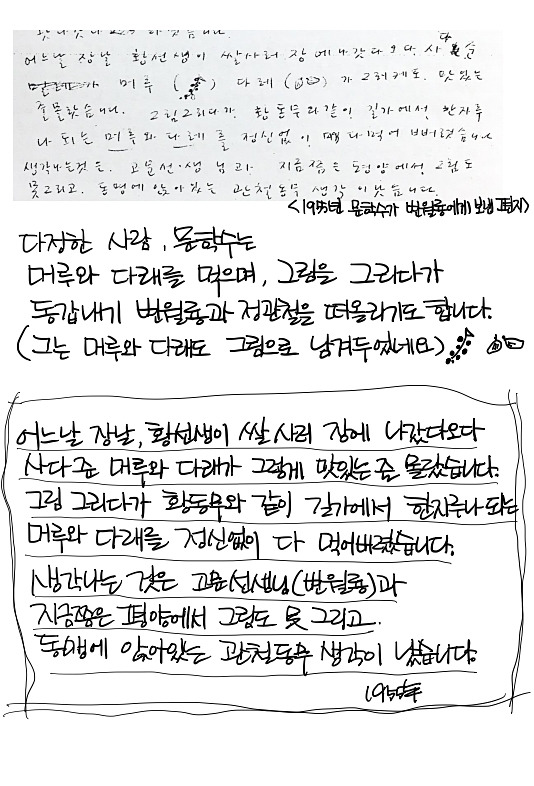 어느날 장날 황선생이 쌀사러 장에 나갔다 오다. 사다 준
머루 ( ) 다래 ( ) 가 그러케도 맛있는
줄 몰랐습니다. 그림 그리다가 황동무와 같이 길가에서 한자루
나 되는 머루와 다래를 정신없이 다 먹어 버렸습니다
생각나는 것은 고문선생님과 지금쯤은 평양에서 그림도
못 그리고. 동맹에 앉아있는 관철동무 생각이 났습니다.
<1955년 문학수가 변월룡에게 보낸 편지>
다정한 사람, 문학수는
머루와 다래를 먹으며, 그림을 그리다가
동갑내기 변월룡과 정관철을 떠올리기도 합니다.
(그는 머루와 다래도 그림으로 남겨두었네요)
어느날 장날, 황선생이 쌀 사러 장에 나갔다오다
사다준 머루와 다래가 그렇게 맛있는 줄 몰랐습니다.
그림 그리다가 황동무와 같이 길가에서 한자루나 되는
머루와 다래를 정신없이 다 먹어버렸습니다.
생각나는 것은 고문선생님(변월룡)과
지금쯤은 평양에서 그림도 못 그리고.
동맹에 앉아있는 관철동무 생각이 났습니다.